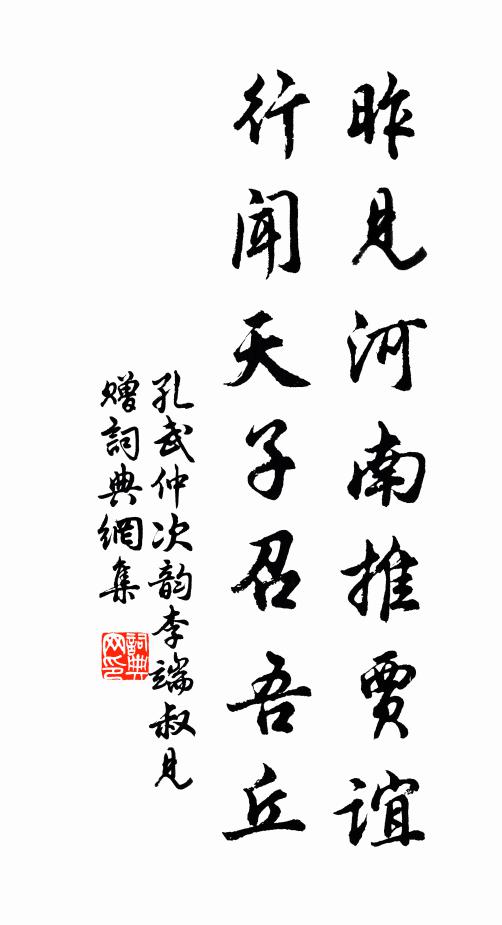 昨見河南推賈誼
行聞天子召吾丘
孔武仲次韵李端叔見
贈詞典網集
詞典网印